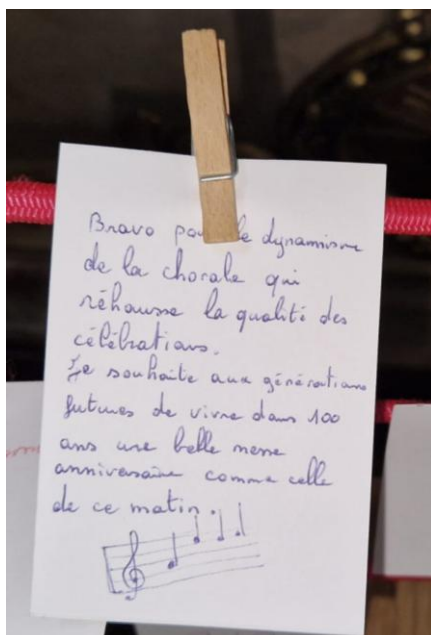 Bravo pour le dynamisme
de la chorale qui
réhausse la qualité des
célébrations.
Je souhaite aux générations
futures de vivre dans 100
ans une belle messe
anniversaire comme celle
de ce matin.